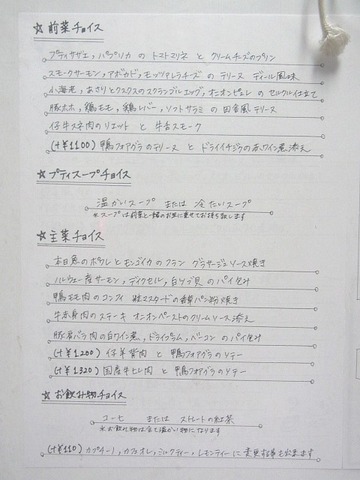 ☆前菜チョイス
プティサザエ、パプリカ の トマトマリネ と クリームチーズのプリン
スモークサーモン、アボカド、モッツァレラチーズ の テリーヌ ディール風味
小海老、あさりとクスクスのスクランブルエッグ、オニオンピュレ の セルクル仕立て
豚太もも、鶏もも、鶏レバー、ソフトサラミ の 田舎風テリーヌ
仔牛スネ肉のリエット と 牛舌スモーク
(+¥1100) 鴨フォアグラのテリーヌ と ドライイチジクの赤ワイン煮 添え
☆プティスープチョイス
温かいスープ または 冷たいスープ
※スープは前菜と一緒のお皿に乗せてお持ち致します
☆主菜チョイス
本日魚のポワレとモンゴイカのフラン グラサージュソース焼き
ノルウェー産サーモン、ディクセル、白ツブ貝 の パイ包み
鴨もも肉のコンフィ 粒マスタードの香草パン粉焼き
牛赤身肉のステーキ オニオンペーストのクリームソース添え
豚肩バラ肉の白ワイン煮、ドライプラム、ベーコン の パイ包み
(+¥1200) 仔羊背肉 と 鴨フォアグラのソテー
(+¥1320) 国産牛ヒレ肉 と 鴨フォアグラのソテー
☆お飲み物チョイス
コーヒー または ストレートの紅茶
※お飲み物は全て温かい物になります
(+¥110) カプチーノ、カフェオレ、ミルクティー、レモンティーに変更する事も出来ます